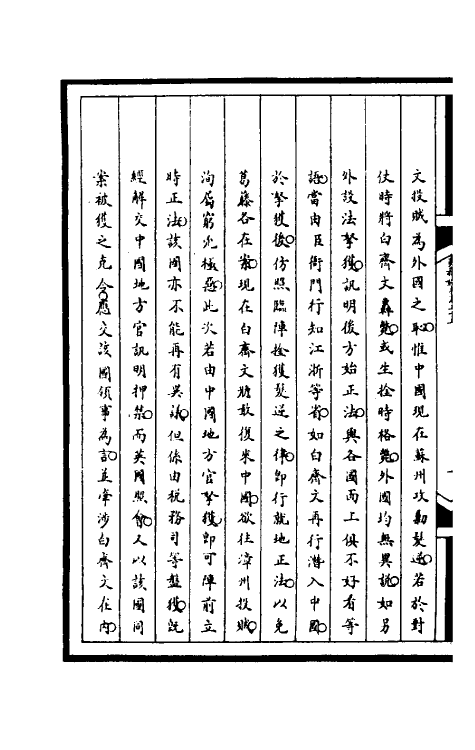 文投賊為外國之恥惟中國現在蘇州攻勦髮逆若於對
仗時將白齊文轟斃或生擒時格斃外國均無異說如另
外設法拏獲訊明後方始正法與各國面上俱不好看等
語當由臣衙門行知江浙等省如白齊文再行潛入中國
於拏獲後仿照臨陣拴獲髮逆之律即行就地正法以免
葛藤各在案現在白齊文膽敢復來中國欲往漳州投賊
洵屬窮兇極惡此次若由中國地方官拏獲即可陣前立
時正法該國亦不能再有異議但係由稅務司等盤獲既
經解交中國地方官訊明押禁而英國照會又以該國同
案被獲之克令應交該國領事為言並牽涉白齊文在內